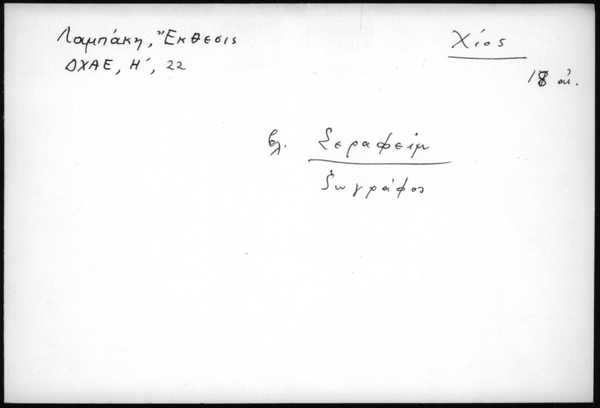 Λαμπάκη, Ἔκθεσις
ΔΧΑΕ, Η΄, 22
Χίος
18 αἰ.
βλ. Σεραφείμ
ζωγράφος